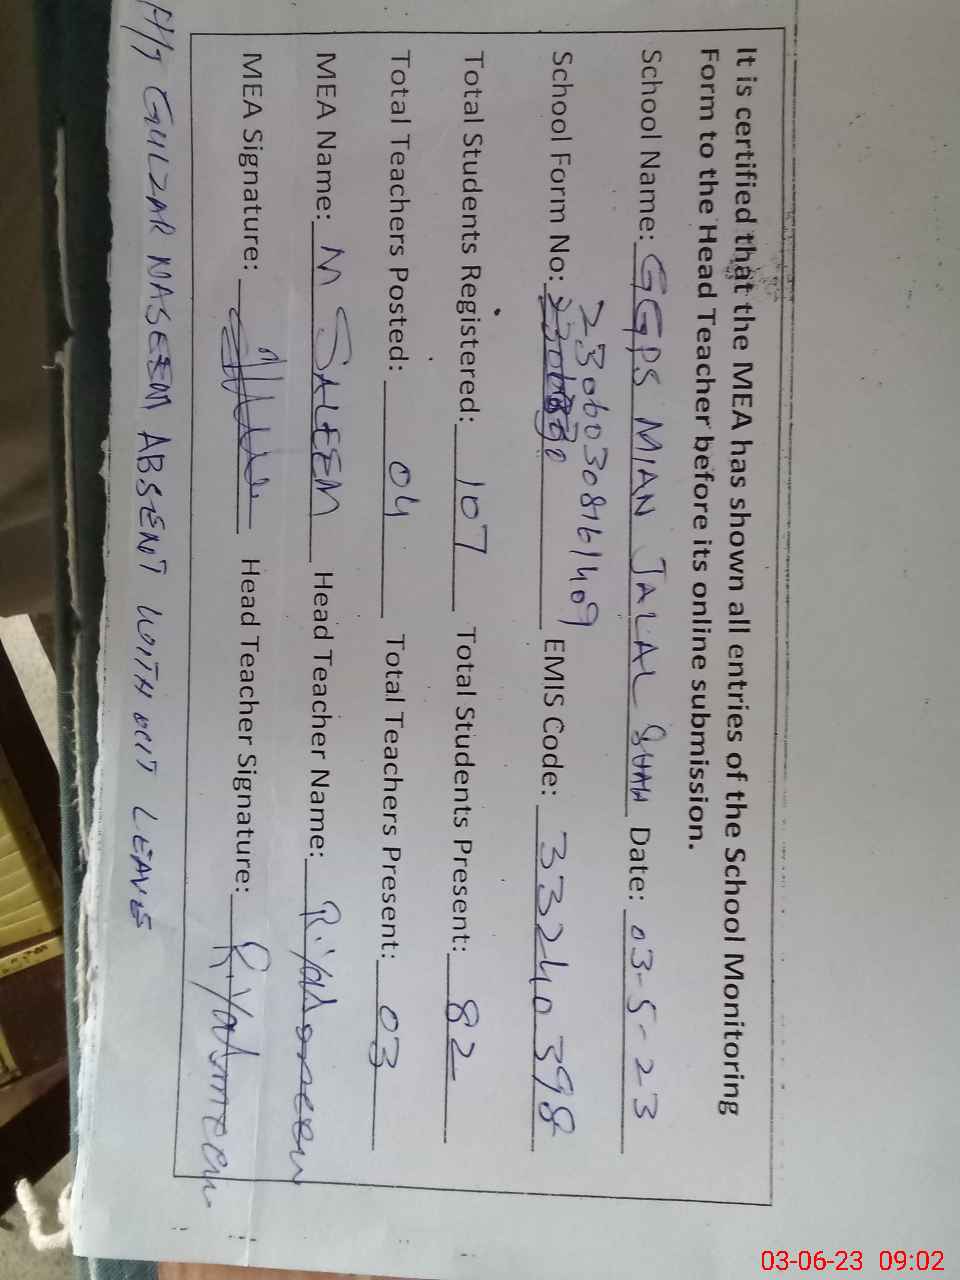 It is certified that the MEA has shown all entries of the School Monitoring
Form to the Head Teacher before its online submission.
School Name: GGPS MIAN JALAL SHAH Date: 03-5-23
23060308161409
School Form No: EMIS Code: 33240398
Total Students Registered: 107 Total Students Present: 82
Total Teachers Posted: 04 Total Teachers Present: 03
MEA Name: M SALEEM Head Teacher Name: R. Yasmeen
MEA Signature: Head Teacher Signature: R. Yasmeen
GULZAR NASEEM ABSENT WITHOUT LEAVE
03-06-23 09:02